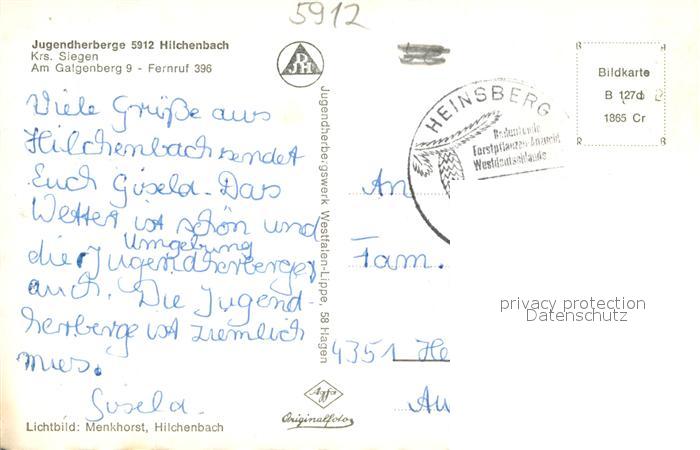 5912
Jugendherberge 5912 Hilchenbach
Krs. Siegen
Am Galgenberg 9 - Fernruf 396
DJH
Viele Grüße aus
Hilchenbach sendet
Euch Gisela. Das
Wetter ist schön und
Umgebung
die Jugendherberge
auch. Die Jugend-
herberge ist ziemlich
mies.
Gisela.
Lichtbild: Menkhorst, Hilchenbach
Jugendherbergswerk Westfalen-Lippe, 58 Hagen
Agfa
Originalfoto
HEINSBERG
Bedeutende
Forstpflanzen-Anzucht
Westdeutschlands
Bildkarte
B 127d
1865 Cr
An
Fam.
4351 He
privacy protection
Datenschutz